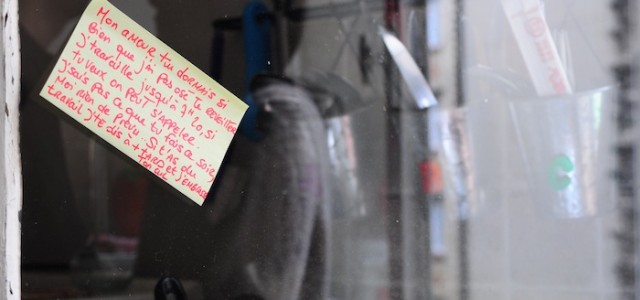 Mon amour tu dormais si
bien que j'ai pas osé te réveiller
j'travaille jusqu'à 7H20, si
tu veux on peut s'appeler.
j'sais pas ce que tu fais ce soir,
Moi rien de prévu. Si t'as du
travail j'te dis à + tard et j'embrasse